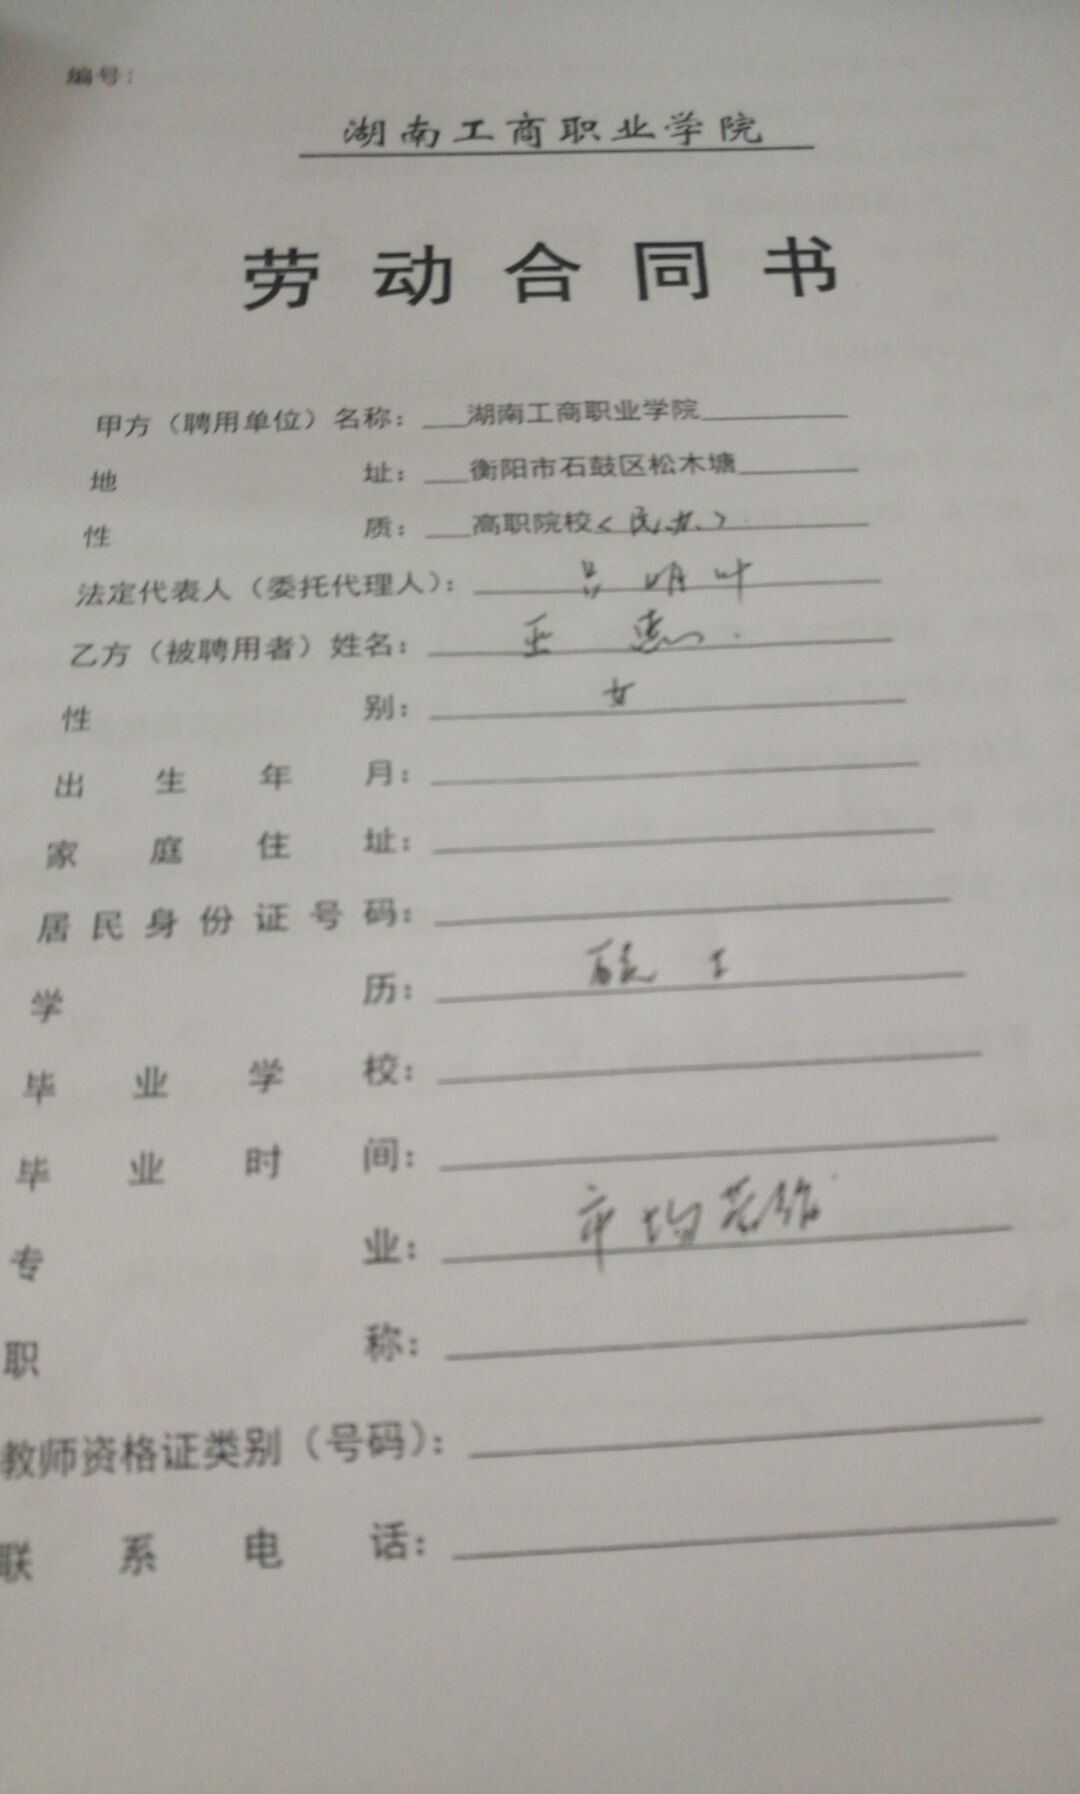 编号：
湖南工商职业学院
劳动合同书
甲方（聘用单位）名称：湖南工商职业学院
地址：衡阳市石鼓区松木塘
性质：高职院校（民办）
法定代表人（委托代理人）：吕明叶
乙方（被聘用者）姓名：王惠
性别：女
出生年月：
家庭住址：
居民身份证号码：
学历：硕士
毕业学校：
毕业时间：
专业：
职称：
教师资格证类别（号码）：
联系电话：